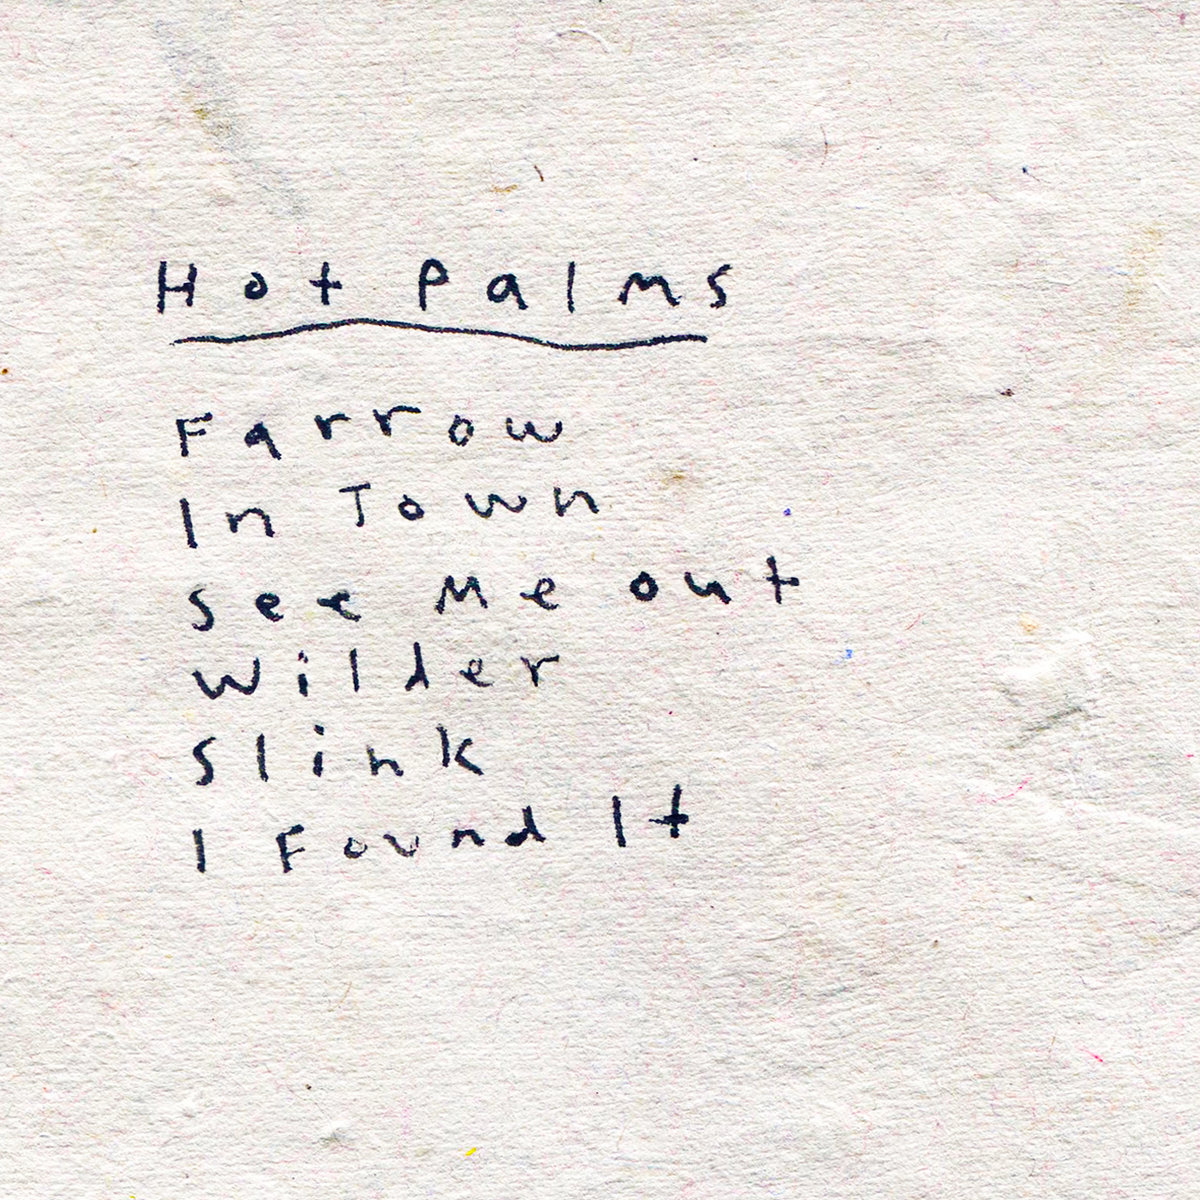 Hot Palms
Farrow
In Town
See Me Out
Wilder
Slink
I Found It